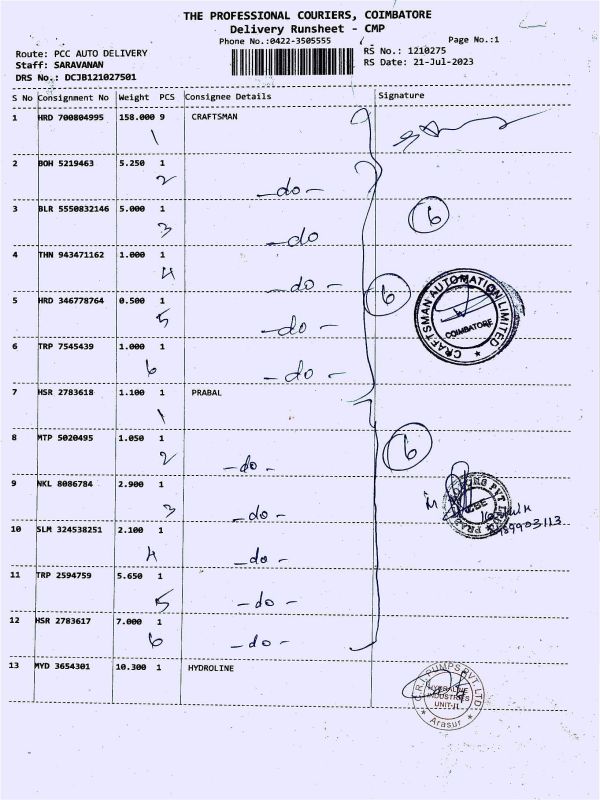 THE PROFESSIONAL COURIERS, COIMBATORE
Delivery Runsheet - CMP
Phone No.:0422-3505555
Page No.:1
Route: PCC AUTO DELIVERY
RS No.: 1210275
Staff: SARAVANAN
RS Date: 21-Jul-2023
DRS No.: DCJB121027501
S No Consignment No Weight PCS Consignee Details Signature
1 HRD 700804995 158.000 9 CRAFTSMAN
1
2 BOH 5219463 5.250 1
2 -do-
3 BLR 5550832146 5.000 1
6
3 -do
4 THN 943471162 1.000 1
4 -do-
6
CRAFTSMAN AUTOMATION LIMITED
COIMBATORE
5 HRD 346778764 0.500 1
5 -do-
6 TRP 7545439 1.000 1
6 -do-
7 HSR 2783618 1.100 1 PRABAL
1
8 MTP 5020495 1.050 1
6
2 -do-
9 NKL 8086784 2.900 1
3 -do-
10 SLM 324538251 2.100 1
4 -do-
11 TRP 2594759 5.650 1
5 -do-
12 HSR 2783617 7.000 1
6 -do-
13 MYD 3654301 10.300 1 HYDROLINE
C.R.I. PUMPS PVT. LTD
INDUSTRIES
UNIT-II
Arasur